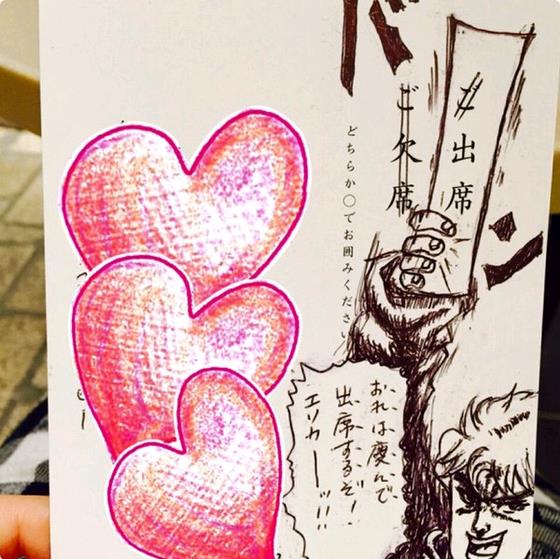 ドン
ご出席
ご欠席
どちらか〇でお囲みくださ
おれは慶んで
出席するぞ!
エリカーッ!!